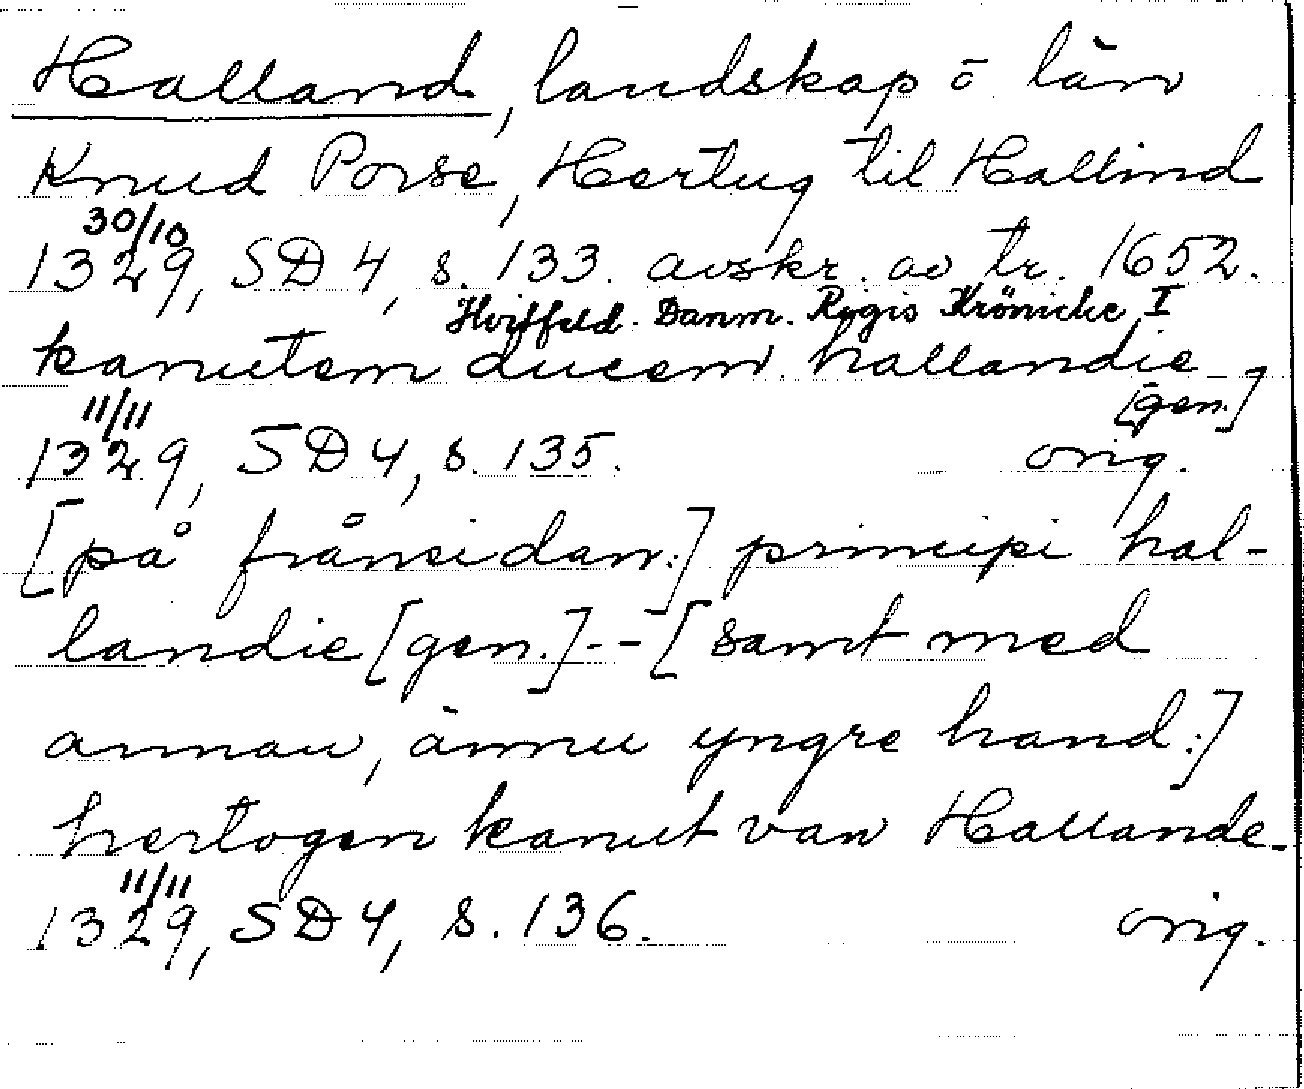 Halland, landskap o län
Knud Porse, Hertug til Hallind
30/10
1329, SD 4, s. 133. avskr. av tr. 1652.
Hvitfeld. Danm. Rigis Krönicke I
kanutem ducem hallandie
[gen.]
11/11
1329, SD 4, s. 135. orig.
[på frånsidan:] principi hal-
landie [gen.] - - [samt med
annan, ännu yngre hand:]
hertogen kanut van Hallande.
11/11
1329, SD 4, s. 136. orig.